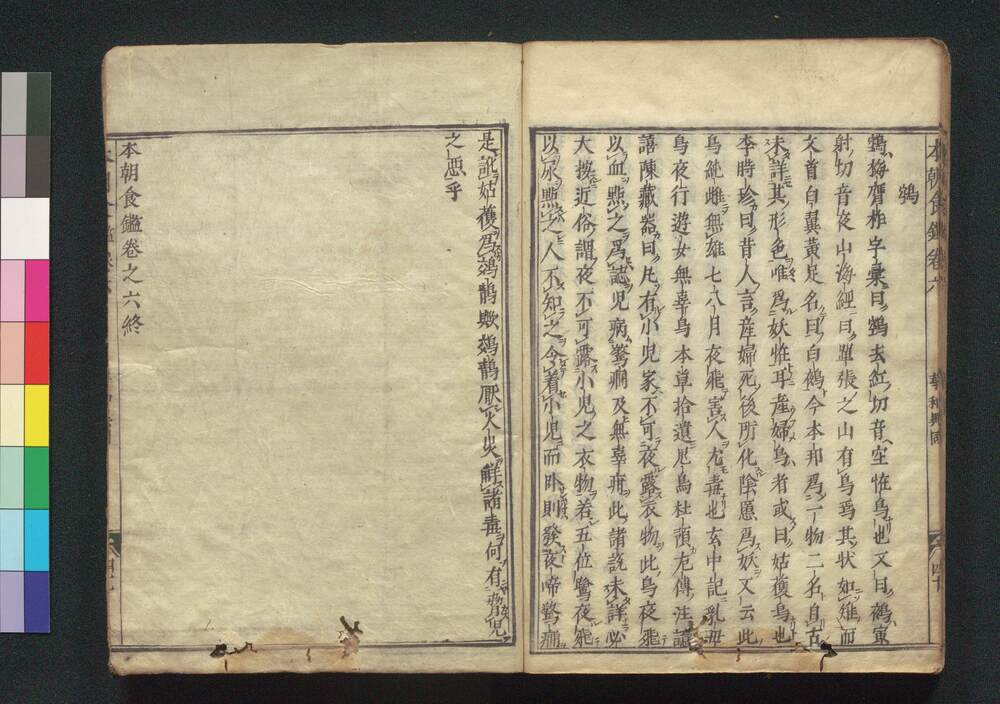 鵼
鵼梅膺祚字彙曰鵼去紅切音空怪鳥也又曰鵺寅
射切音夜山海經曰單張之山有鳥焉其狀如雉而
文首白翼黃足名曰白鵺今本邦爲一物二名自古
未詳其形色唯爲妖怪耳産婦鳥者或曰姑獲鳥也
李時珍曰昔人言産婦死後所化陰慝爲妖又云此
鳥純雌無雄七八月夜飛害人尤毒也玄中記乳母
鳥夜行遊女無辜鳥本草拾遺鬼鳥杜預左傳注譩
譆陳藏器曰凡有小兒家不可夜露衣物此鳥夜飛
以血點之爲誌兒病驚癇及無辜疳此諸説未詳必
大按近俗謂夜不可露小兒之衣物若五位鷺夜飛
以尿點之人不知之令着小兒而卧則發夜啼驚痛
是訛姑獲爲鵁鶄歟鵁鶄厭火災解諸毒何有
之患乎
本朝食鑑卷之六終
本朝食鑑卷六
華和異同